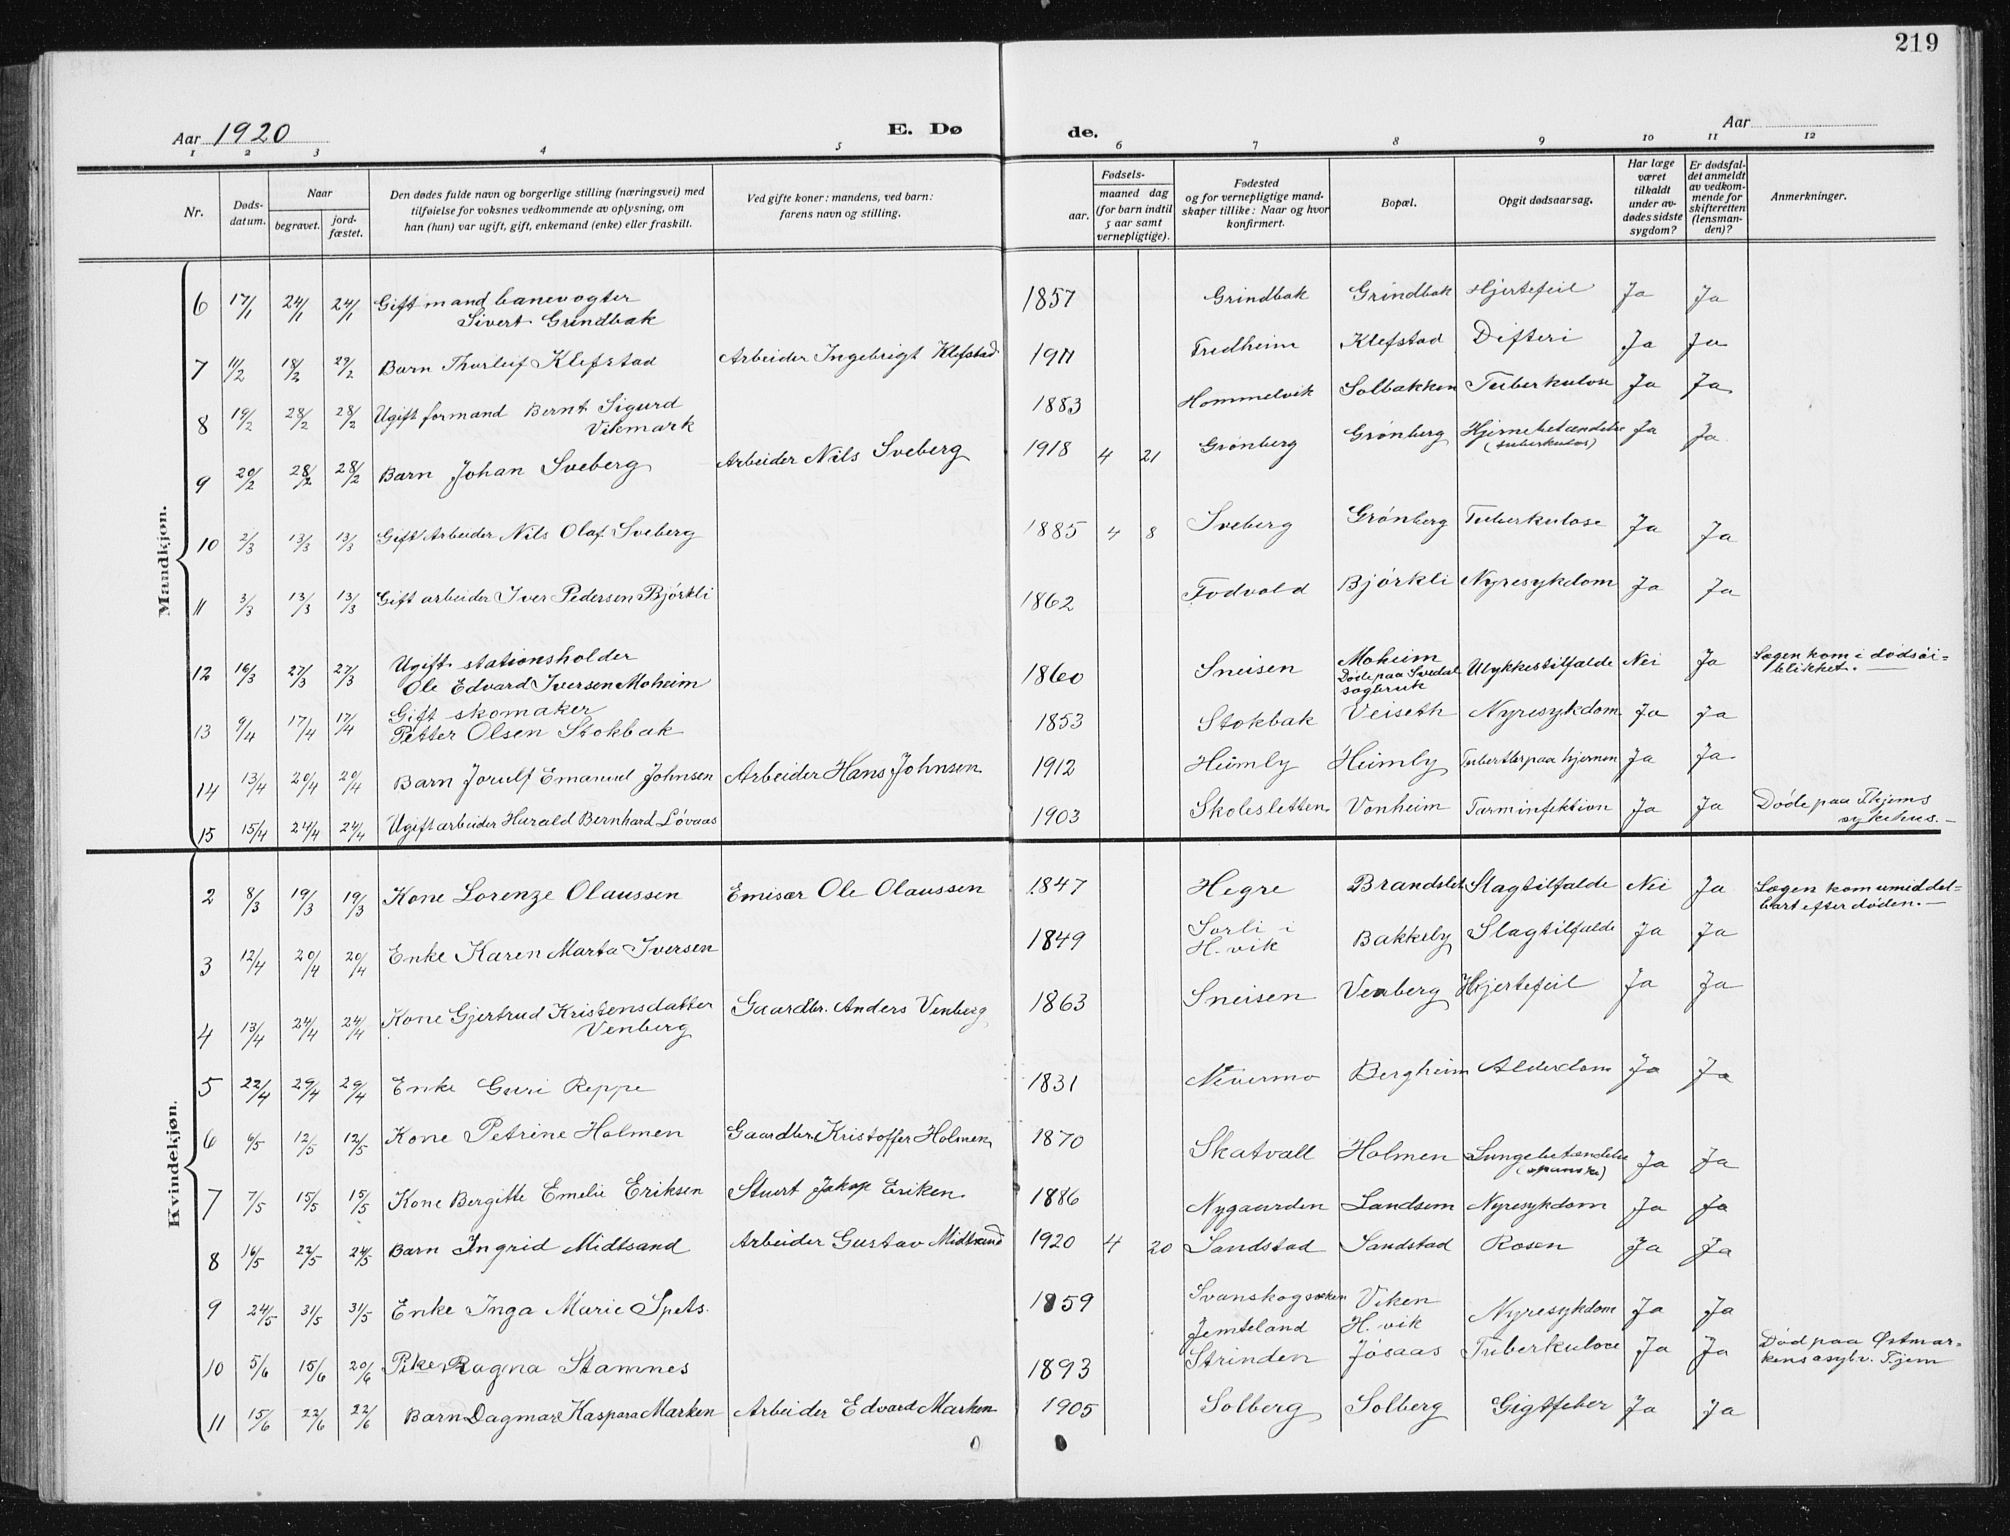 219
Aar 1920
E. Dø
de.
Aar
1 2 3 4 5 6 7 8 9 10 11 12
Nr.
Døds-
datum.
Naar
begravet.
jord-
fæstet.
Den dødes fulde navn og borgerlige stilling (næringsvei) med
tilføielse for voksnes vedkommende av oplysning, om
han (hun) var ugift, gift, enkemand (enke) eller fraskilt.
Ved gifte koner: mandens, ved barn:
farens navn og stilling.
Fødsels-
aar.
maaned dag
(for barn indtil
5 aar samt
vernepligtige).
Fødested
og for vernepligtige mand-
skaper tillike: Naar og hvor
konfirmert.
Bopæl.
Opgit dødsaarsag.
Har læge
været
tilkaldt
under av-
dødes sidste
sygdom?
Er dødsfal-
det anmeldt
av vedkom-
mende for
skifteretten
(lensman-
den)?
Anmerkninger.
Mandkjøn.
6 17/1 24/1 24/1 Gift mand banevogter 1857 Grindbak Grindbak Hjertefeil Ja Ja
Sivert Grindbak
7 11/2 18/2 29/2 Barn Thorleif Klefstad Arbeider Ingebrigt Klefstad 1911 Fredheim Klefstad Difteri Ja Ja
8 19/2 28/2 28/2 Ugift formand Bernt Sigurd 1883 Hommelvik Solbakken Tuberkulose Ja Ja
Vikmark
9 20/2 28/2 28/2 Barn Johan Sveberg Arbeider Nils Sveberg 1918 4 21 Grønberg Grønberg Hjernebetændelse Ja Ja
(tuberkulos)
10 2/3 13/3 13/3 Gift Arbeider Nils Olaf Sveberg 1885 4 8 Sveberg Grønberg Tuberkulose Ja Ja
11 3/3 13/3 13/3 Gift arbeider Iver Pedersen Bjørkli 1862 Fodvold Bjørkli Nyresykdom Ja Ja
12 16/3 27/3 27/3 Ugift stationsholder 1860 Sneisen Moheim Ulykkestilfælde Nei Ja Lægen kom i dødsøi-
Ole Edvard Iversen Moheim Døde paa Svedal blikket.
sagbruk
13 9/4 17/4 17/4 Gift skomaker 1853 Stokbak Veiseth Nyresykdom Ja Ja
Petter Olsen Stokbak
14 13/4 20/4 20/4 Barn Jorulf Emanuel Johnsen Arbeider Hans Johnsen 1912 Heimly Heimly Tuberkler paa hjernen Ja Ja
15 15/4 24/4 24/4 Ugift arbeider Harald Bernhard Løvaas 1903 Skolesletten Vonheim Tarminfektion Ja Ja Døde paa Thjems
sykehus.
Kvindekjøn.
2 8/3 19/3 19/3 Kone Lorenze Olaussen Emisær Ole Olaussen 1847 Hegre Brandslet Slagtilfælde Nei Ja Lægen kom umiddel-
bart efter døden.
3 12/4 20/4 20/4 Enke Karen Marta Iversen 1849 Sorli i Bakkeby Slagtilfælde Ja Ja
H. vik
4 13/4 24/4 24/4 Kone Gjertrud Kristensdatter Gaardbr. Anders Venberg 1863 Sneisen Venberg Hjertefeil Ja Ja
Venberg
5 22/4 29/4 29/4 Enke Guri Reppe 1831 Nevermo Bergheim Alderdom Ja Ja
6 6/5 12/5 12/5 Kone Petrine Holmen Gaardbr. Kristoffer Holmen 1870 Skatvall Holmen Lungebetændelse Ja Ja
(spanske)
7 7/5 15/5 15/5 Kone Bergitte Emelie Eriksen Stuert Jakop Eriken 1886 Nygaarden Landsem Nyresykdom Ja Ja
8 16/5 22/5 24/5 Barn Ingrid Midtsand Arbeider Gustav Midtsand 1920 4 20 Sandstad Sandstad Rosen Ja Ja
9 24/5 31/5 31/5 Enke Inga Marie Spets 1859 Svanskogsøken Viken Nyresykdom Ja Ja
Jemteland H. vik
10 5/6 15/6 20/6 Pike Ragna Stamnes 1893 Strinden Jøsaas Tuberkulose Ja Ja Død paa Østmar-
kens asyl v. Tjem
11 15/6 22/6 22/6 Barn Dagmar Kaspara Marken Arbeider Edvard Marken 1905 Solberg Solberg Gigtfeber Ja Ja